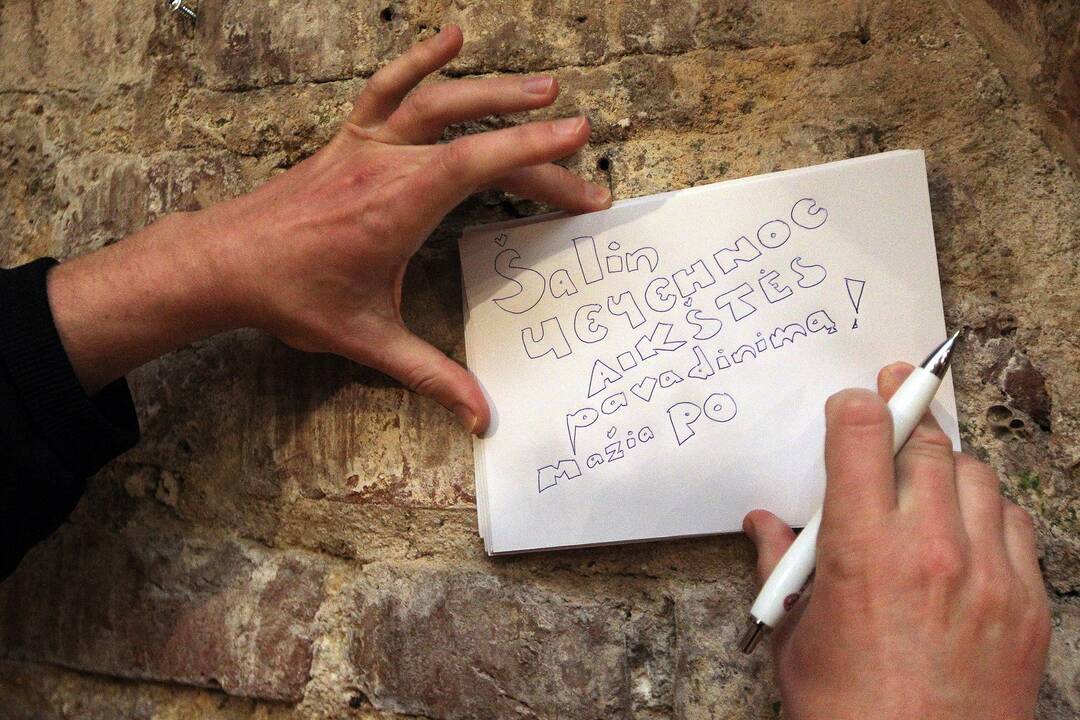 Šalin
ЧЕЧЕНИОС
AIKŠTĖS
pavadinimą!
mažia PO